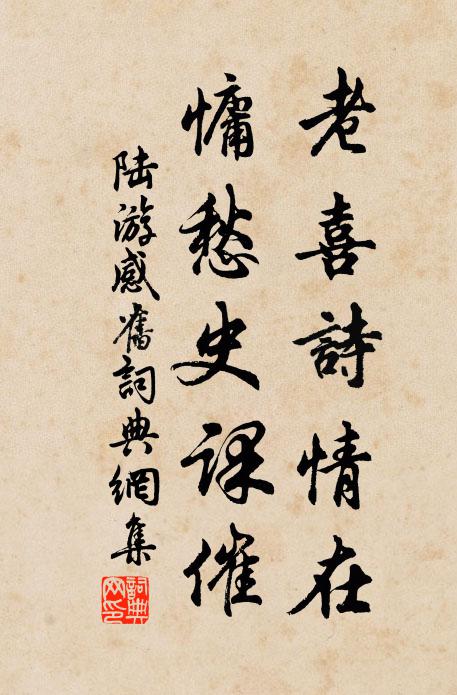 老喜詩情在
慵愁史課催
陸游感舊詞典網集
詞典